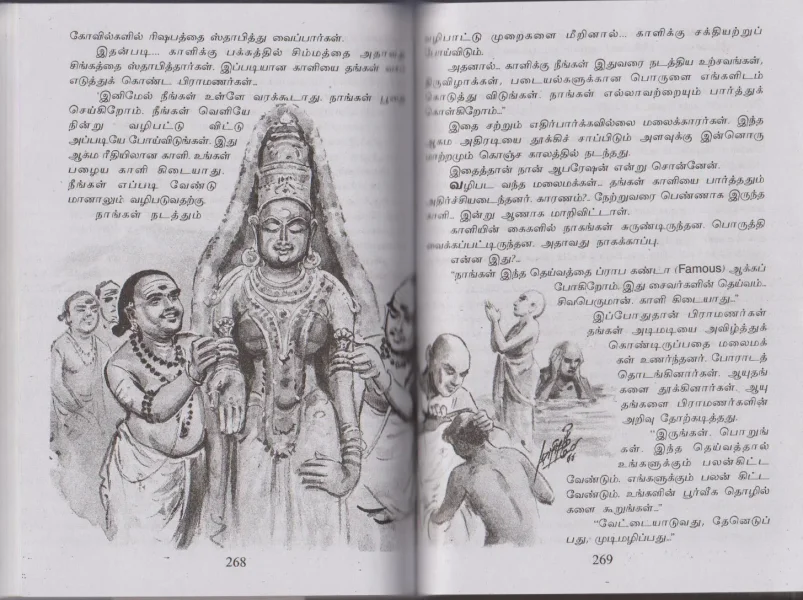 கோவில்களில் ரிஷபத்தை ஸ்தாபித்து வைப்பார்கள்.
இதன்படி.... காளிக்கு பக்கத்தில் சிம்மத்தை
சிங்கத்தை ஸ்தாபித்தார்கள். இப்படியான காளியை தங்கள்
எடுத்துக் கொண்ட பிராமணர்கள்..
'இனிமேல் நீங்கள் உள்ளே வரக்கூடாது. நாங்கள்
செய்கிறோம். நீங்கள் வெளியே
நின்று வழிபட்டு விட்டு
அப்படியே போய்விடுங்கள். இது
ஆகம ரீதியிலான காளி. உங்கள்
பழைய காளி கிடையாது.
நீங்கள் எப்படி வேண்டு
மானாலும் வழிபடுவதற்கு.
நாங்கள் நடத்தும்
268
வழிபாட்டு முறைகளை மீறினால்... காளிக்கு சக்தியற்றுப்
போய்விடும்.
அதனால்.. காளிக்கு நீங்கள் இதுவரை நடத்திய உற்சவங்கள்,
திருவிழாக்கள், படையல்களுக்கான பொருளை எங்களிடம்
கொடுத்து விடுங்கள். நாங்கள் எல்லாவற்றையும் பார்த்துக்
கொள்கிறோம்.."
இதை சற்றும் எதிர்பார்க்கவில்லை மலைக்காரர்கள். இந்த
ஆகம அதிரடியை தூக்கிச் சாப்பிடும் அளவுக்கு இன்னொரு
மாற்றமும் கொஞ்ச காலத்தில் நடந்தது.
இதைத்தான் நான் ஆபரேஷன் என்று சொன்னேன்.
வழிபட வந்த மலைமக்கள்... தங்கள் காளியை பார்த்ததும்
அதிர்ச்சியடைந்தனர். காரணம்?.. நேற்றுவரை பெண்ணாக இருந்த
காளி... இன்று ஆணாக மாறிவிட்டாள்.
காளியின் கைகளில் நாகங்கள் சுருண்டிருந்தன. பொருத்தி
வைக்கப்பட்டிருந்தன. அதாவது நாகக்காப்பு.
என்ன இது?..
"நாங்கள் இந்த தெய்வத்தை ப்ராப கண்டா (Famous) ஆக்கப்
போகிறோம். இது சைவர்களின் தெய்வம்..
சிவபெருமான். காளி கிடையாது.."
இப்போதுதான் பிராமணர்கள்
தங்கள் அடிமடியை அவிழ்த்துக்
கொண்டிருப்பதை மலைமக்
கள் உணர்ந்தனர். போராடத்
தொடங்கினார்கள். ஆயுதங்
களை தூக்கினார்கள். ஆயு
தங்களை பிராமணர்களின்
அறிவு தோற்கடித்தது.
"இருங்கள். பொறுங்
கள். இந்த தெய்வத்தால்
உங்களுக்கும் பலன்கிட்ட
வேண்டும். எங்களுக்கும் பலன் கிட்ட
வேண்டும். உங்களின் பூர்வீக தொழில்
களை கூறுங்கள்.."
"வேட்டையாடுவது, தேனெடுப்
பது, முடிமழிப்பது.."
269